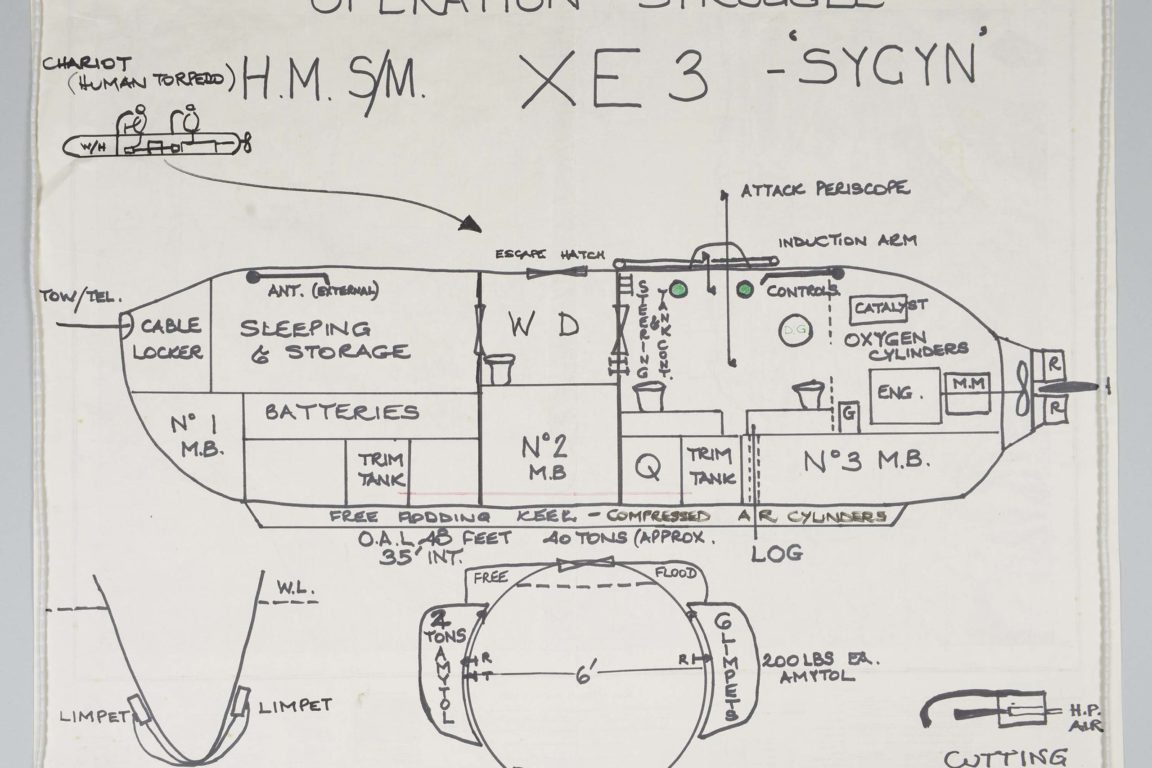 OPERATION STRUGGLE
CHARIOT
(HUMAN TORPEDO)
H.M. S/M. XE3 - 'SYGYN'
W/H
ATTACK PERISCOPE
INDUCTION ARM
ESCAPE HATCH
TOW/TEL.
ANT. (EXTERNAL)
CABLE
LOCKER
SLEEPING
& STORAGE
W D
STEERING &
TANK CONT.
CONTROLS
D.G
CATALYST
OXYGEN
CYLINDERS
ENG.
M.M
R
R
G
Nº 1
M.B.
BATTERIES
TRIM
TANK
Nº2
M.B
Q
TRIM
TANK
Nº3 M.B.
FREE FLOODING KEEL - COMPRESSED AIR CYLINDERS
O.A.L 48 FEET 40 TONS (APPROX.
35' INT.
LOG
W.L.
LIMPET
LIMPET
FREE
FLOOD
2
TONS
AMYTOL
R
T
6'
R
6
LIMPETS
200 LBS EA.
AMYTOL
H.P.
AIR
CUTTING